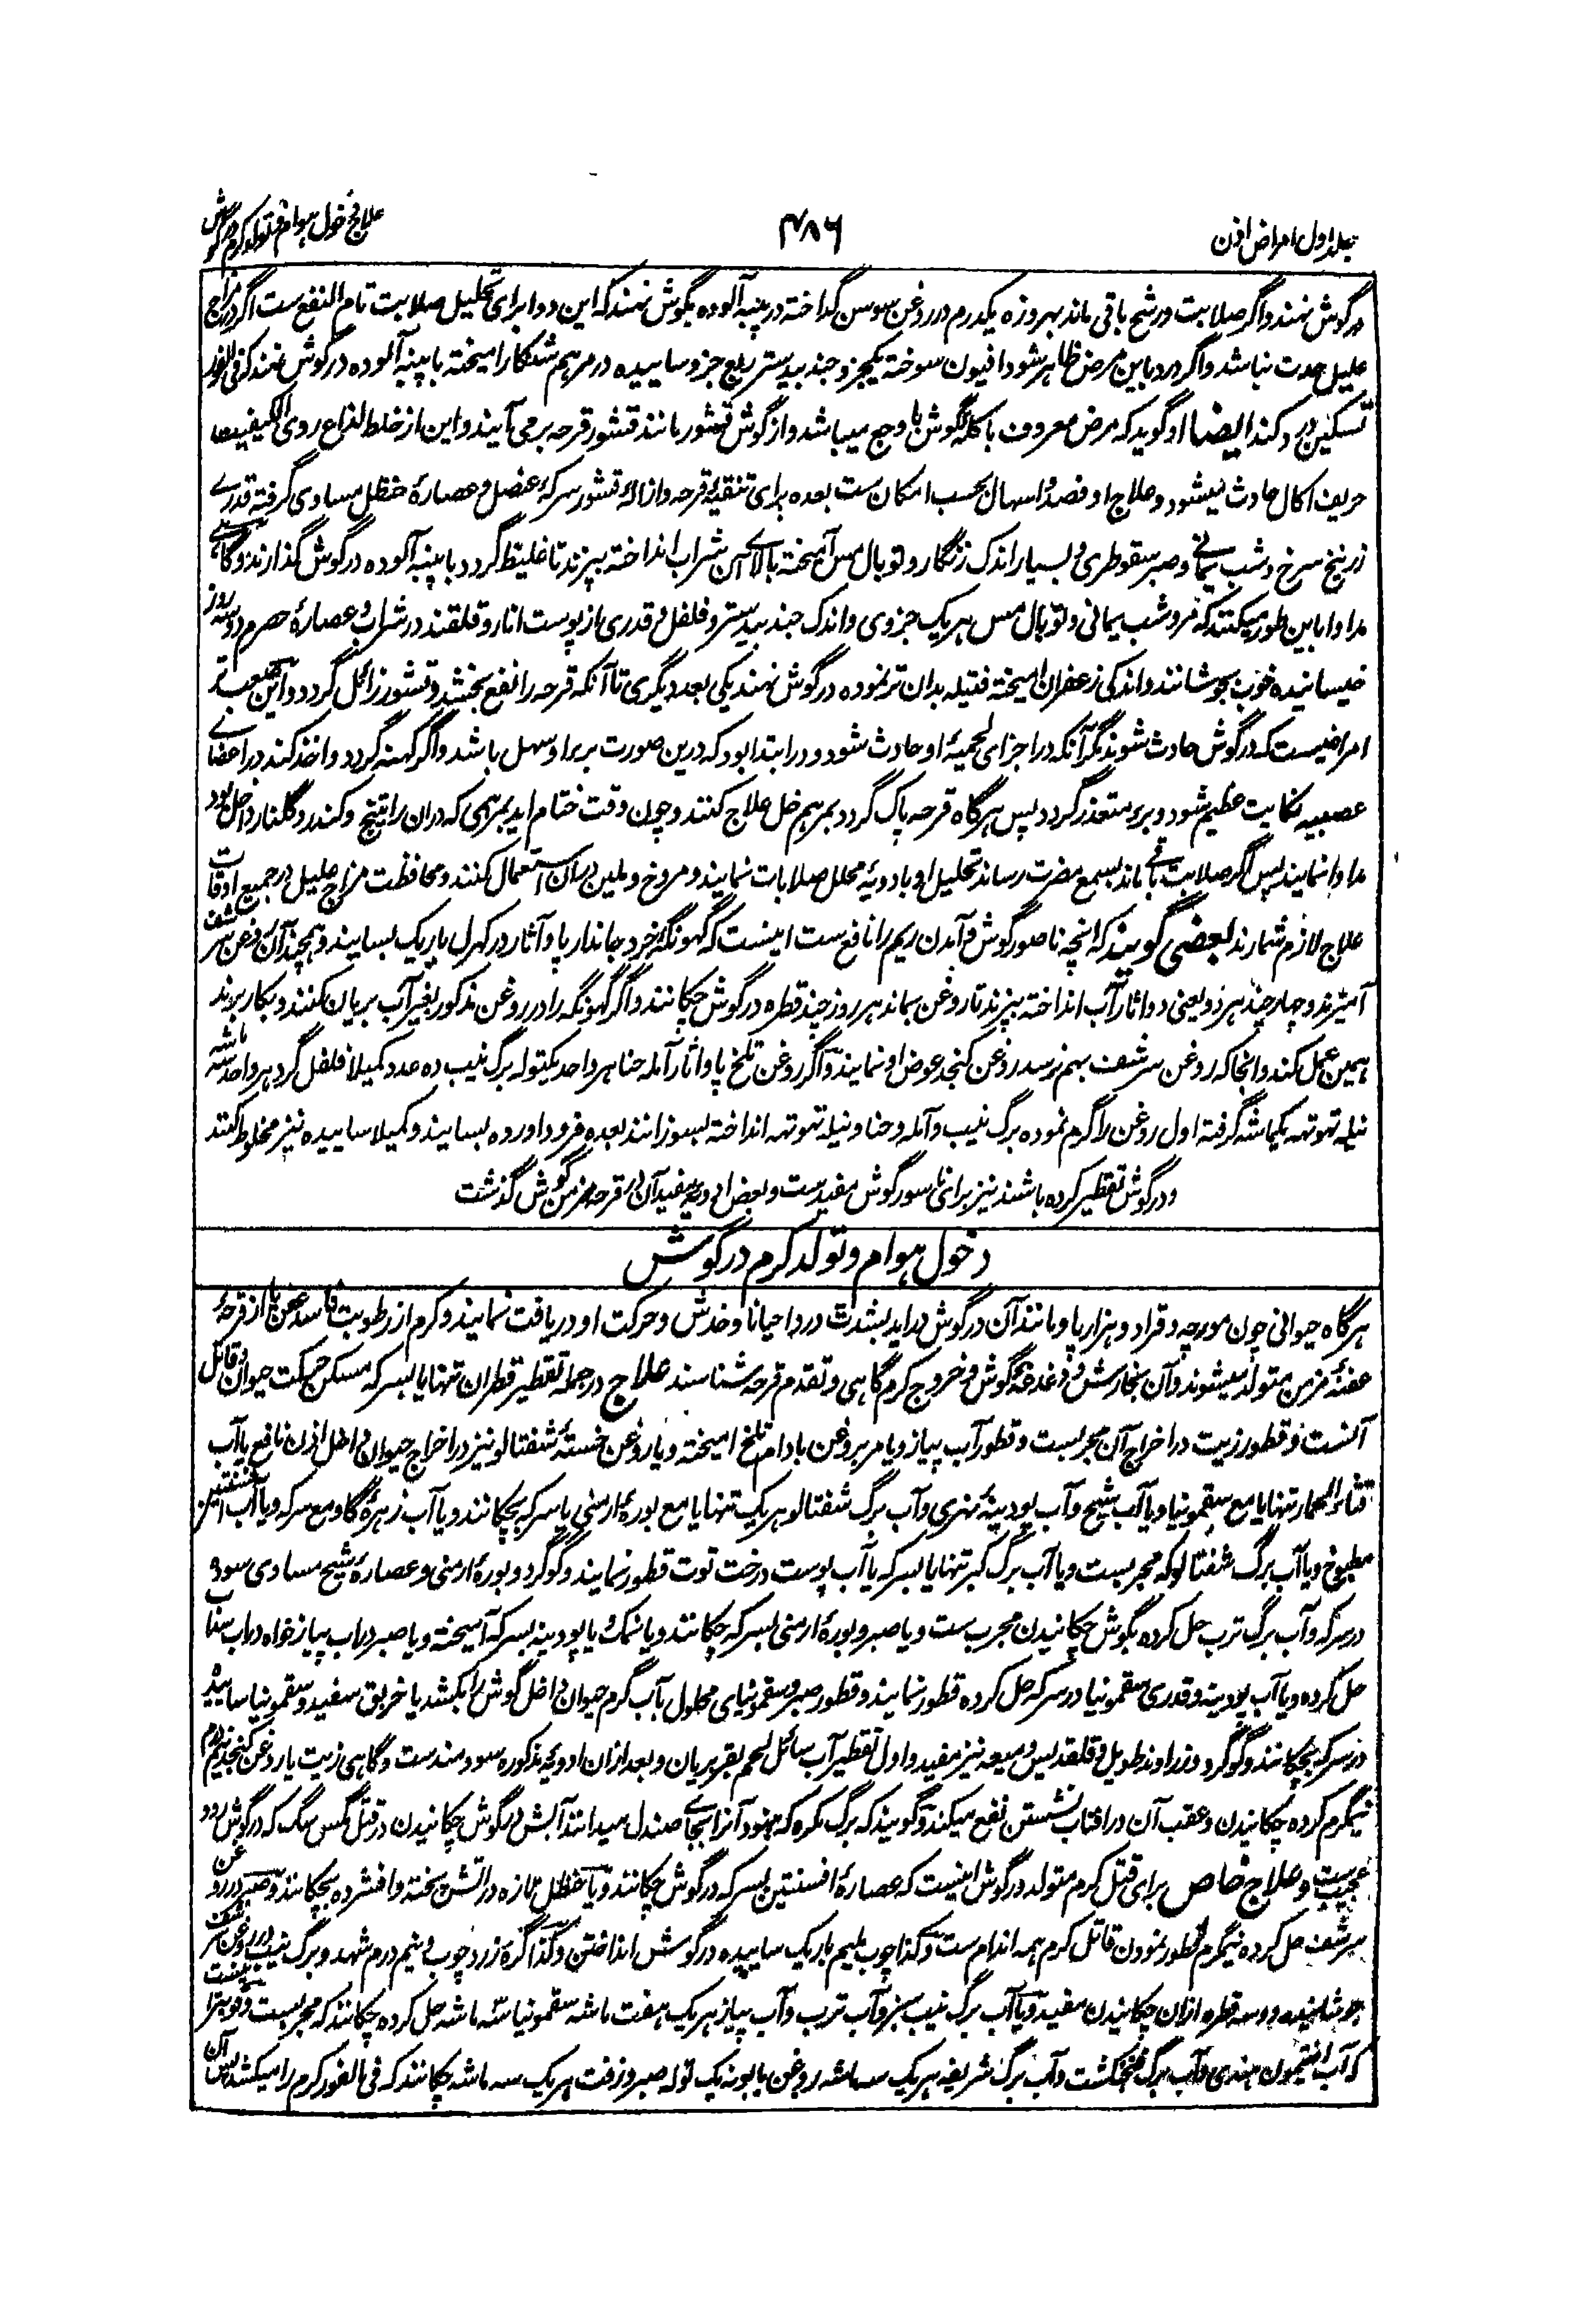 جلد اول امراض اذن
۴۸۶
علاج دخول ہوام و تولد کرم در گوش
در گوش نہند و اگر صلابت در شخ باقی ماند بہروزہ یکدرم در روغن سوسن گداختہ در پنبہ آلودہ بگوش نہند کہ این دوا برای تحلیل صلابت تام النفع ست اگر در مزاج
علیل حدت نباشد و اگر درد باین مرض ظاہر شود افیون سوختہ یکجزو جندبیدستر ربع جزو ساییدہ در مرہم شنگار امیختہ با پنبہ آلودہ در گوش نہند کہ فی الفور
تسکین درد کند ایضا او گوید کہ مرض معروف باکلۃ گوش با وجع میباشد و از گوش قشور مانند قشور قرحہ برمی آیند و این از خلط لذاع ردی الکیفیت
حریف اکال حادث میشود و علاج او فصد و اسہال بحسب امکان ست بعدہ برای تنقیۂ قرحہ و ازالۂ قشور سرکۂ عنصل و عصارۂ حنظل مساوی گرفتہ قدرے
زرنیخ سرخ و شب یمانے و صبر سقوطری و بسیار اندک زنگار و توبال مس آمیختہ بالاے آن شراب انداختہ بپزند تا غلیظ گردد با پنبہ آلودہ در گوش گذارند و گاہے
مداوا باین طور میکنند کہ مر و شب یمانی و توبال مس ہریک جزوی و اندک جندبیدستر و فلفل و قدری از پوست انار و قلقند در شراب و عصارۂ حصرم دو سہ روز
خیسانیدہ خوب بجوشانند و اندکی زعفران امیختہ فتیلہ بدان تر نمودہ در گوش نہند یکی بعد دیگری تا آنکہ قرحہ را نفع بخشد و قشور زائل گردد و این صعب تر
امراضیست کہ در گوش حادث شوند مگر آنکہ در اجزای لحمیۂ او حادث شود و در ابتدا بود کہ درین صورت برء او سہل باشد و اگر کہنہ گردد و اخذ کند در اعضاے
عصبیہ نکایت عظیم شود و برء متعذر گردد پس ہرگاہ قرحہ پاک گردد بمرہم خل علاج کنند و چون وقت ختام آید بمرہمی کہ دران راتینج و کندر و گلنار داخل بود
مداوا نمایند پس اگر صلابت باقے ماند بسمع مضرت رساند تحلیل او بادویۂ محلل صلابات نمایند و مروخ و ملین دران استعمال کنند و محافظت مزاج علیل در جمیع اوقات
علاج لازم شمارند بعضی گویند کہ انچہ ناصور گوش و آمدن ریم را نافع ست اینست کہ گہونگۂ خرد جاندار پا و آثار در کہرل باریک بسایند و ہمچند آن روغن سرشف
آمیزند و چہار چند ہر دو یعنی دو اثار آب انداختہ بپزند تا روغن بماند ہر روز چند قطرہ در گوش چکانند و اگر گہونگہ را در روغن مذکور بغیر آب بریان کنند و بکار برند
ہمین عمل کند و انجا کہ روغن سرشف بہم نرسد روغن کنجد عوض او نمایند و اگر روغن تلخ پاو اثار آملہ حنا ہر واحد یکتولہ برگ نیب دہ عدد کمیلا فلفل گرد ہر واحد سہ ماشہ
نیلہ تہوتہہ یکماشہ گرفتہ اول روغن را گرم نمودہ برگ نیب و آملہ و حنا و نیلہ تہوتہہ انداختہ بسوزانند بعدہ فرود اوردہ بسایند و کمیلا ساییدہ نیز مخلوط کنند
و در گوش تقطیر کردہ باشند نیز برای ناسور گوش مفیدست و بعض ادویہ مفید آن در قرحہ مزمن گوش گذشت
دخول ہوام و تولد کرم در گوش
ہرگاہ حیوانی چون مورچہ و قراد و ہزارپا و مانند آن در گوش دراید بشدت درد احیانا و خدش و حرکت او دریافت نمایند و کرم از رطوبت فاسد عفن یا از قرحۂ
عفنۂ مزمن متولد میشوند و آن بخارش و دغدغۂ گوش و خروج کرم گاہی و تقدم قرحہ شناسند علاج در جملہ تقطیر قطران تنہا یا بسرکہ مسکن حرکت حیوان و قاتل
آنست و قطور زیت در اخراج آن مجربست و قطور آب پیاز و یا مر بروغن بادام تلخ امیختہ و یا روغن خستۂ شفتالو نیز در اخراج حیوان داخل اذن نافع یا آب
قثاء الحمار تنہا یا مع سقمونیا و یا آب شیح و آب پودینۂ نہری و آب برگ شفتالو ہریک تنہا یا مع بورۂ ارمنی یا سرکہ بچکانند و یا آب زہرۂ گاو مع سرکہ و یا آب افسنتین
مطبوخ و یا آب برگ شفتالو کہ مجربست و یا آب برگ کبر تنہا یا بسرکہ یا آب پوست درخت توت قطور نمایند و گوگرد و بورۂ ارمنی و عصارۂ شیح مساوی سودہ
در سرکہ و آب برگ ترب حل کردہ بگوش چکانیدن مجرب ست و یا صبر و بورۂ ارمنی بسرکہ چکانند و یا نمک و یا پودینہ بسرکہ آمیختہ و یا صبر دراب پیاز خواہ دراب سنا
حل کردہ و یا آب پودینہ و قدری سقمونیا در سرکہ حل کردہ قطور نمایند و قطور صبر و سقمونیای محلول بآب گرم حیوان داخل گوش را بکشد یا خربق سفید و سقمونیا ساییدہ
در سرکہ بچکانند و گوگرد و زراوند طویل و قلقدیس و میعہ نیز مفید و اول تقطیر آب سائل لحم بقر بریان و بعد ازان ادویۂ مذکورہ سودمندست و گاہی زیت یا روغن کنجد نیم درم
نیمگرم کردہ چکانیدن و عقب آن در افتاب نشستن نفع میکند و گویند کہ برگ مکرہ کہ ہنود آنرا بجاے صندل میدانند آبش در گوش چکانیدن در قتل مگس سگ کہ در گوش رود
عجیب ست و علاج خاص برای قتل کرم متولد در گوش اینست کہ عصارۂ افسنتین بسرکہ در گوش چکانند و یا حنظل تازہ در اتش پختہ و افشردہ بچکانند و صبر در روغن
سرشف حل کردہ نیمگرم قطور نمودن قاتل کرم ہمہ اندام ست و کذا چوب نیم باریک ساییدہ در گوش انداختن و کذا گرۂ زرد چوب و نیم درم شہد و برگ نیب در روغن سرشف
جوشانیدہ دو سہ قطرہ ازان چکانیدن مفید و یا آب برگ نیب سبز و آب ترب و آب پیاز ہریک ہفت ماشہ سقمونیا سہ ماشہ حل کردہ چکانند کہ مجربست
کہ آب افتیمون ہندی و آب برگ فنجنکشت و آب برگ شریفہ ہریک سہ ماشہ روغن بابونہ یک تولہ صبر و زفت ہریک سہ ماشہ چکانند کہ فی الفور کرم را میکشد پس آن